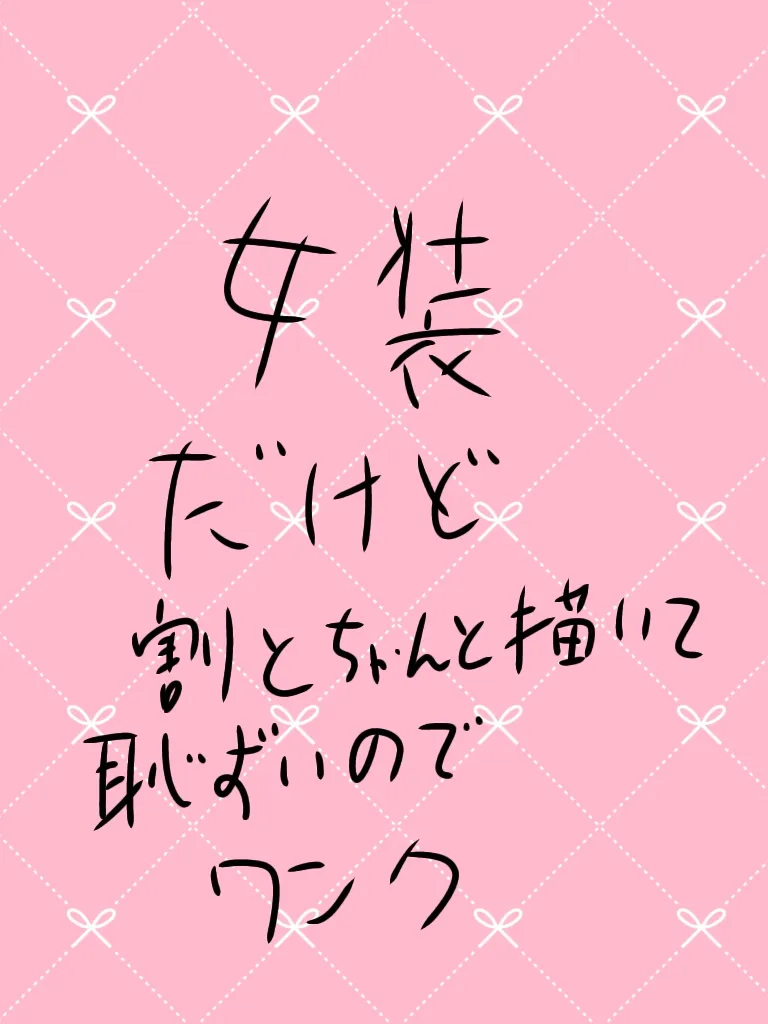 女装
だけど
割とちゃんと描いて
恥ずいので
ワンク